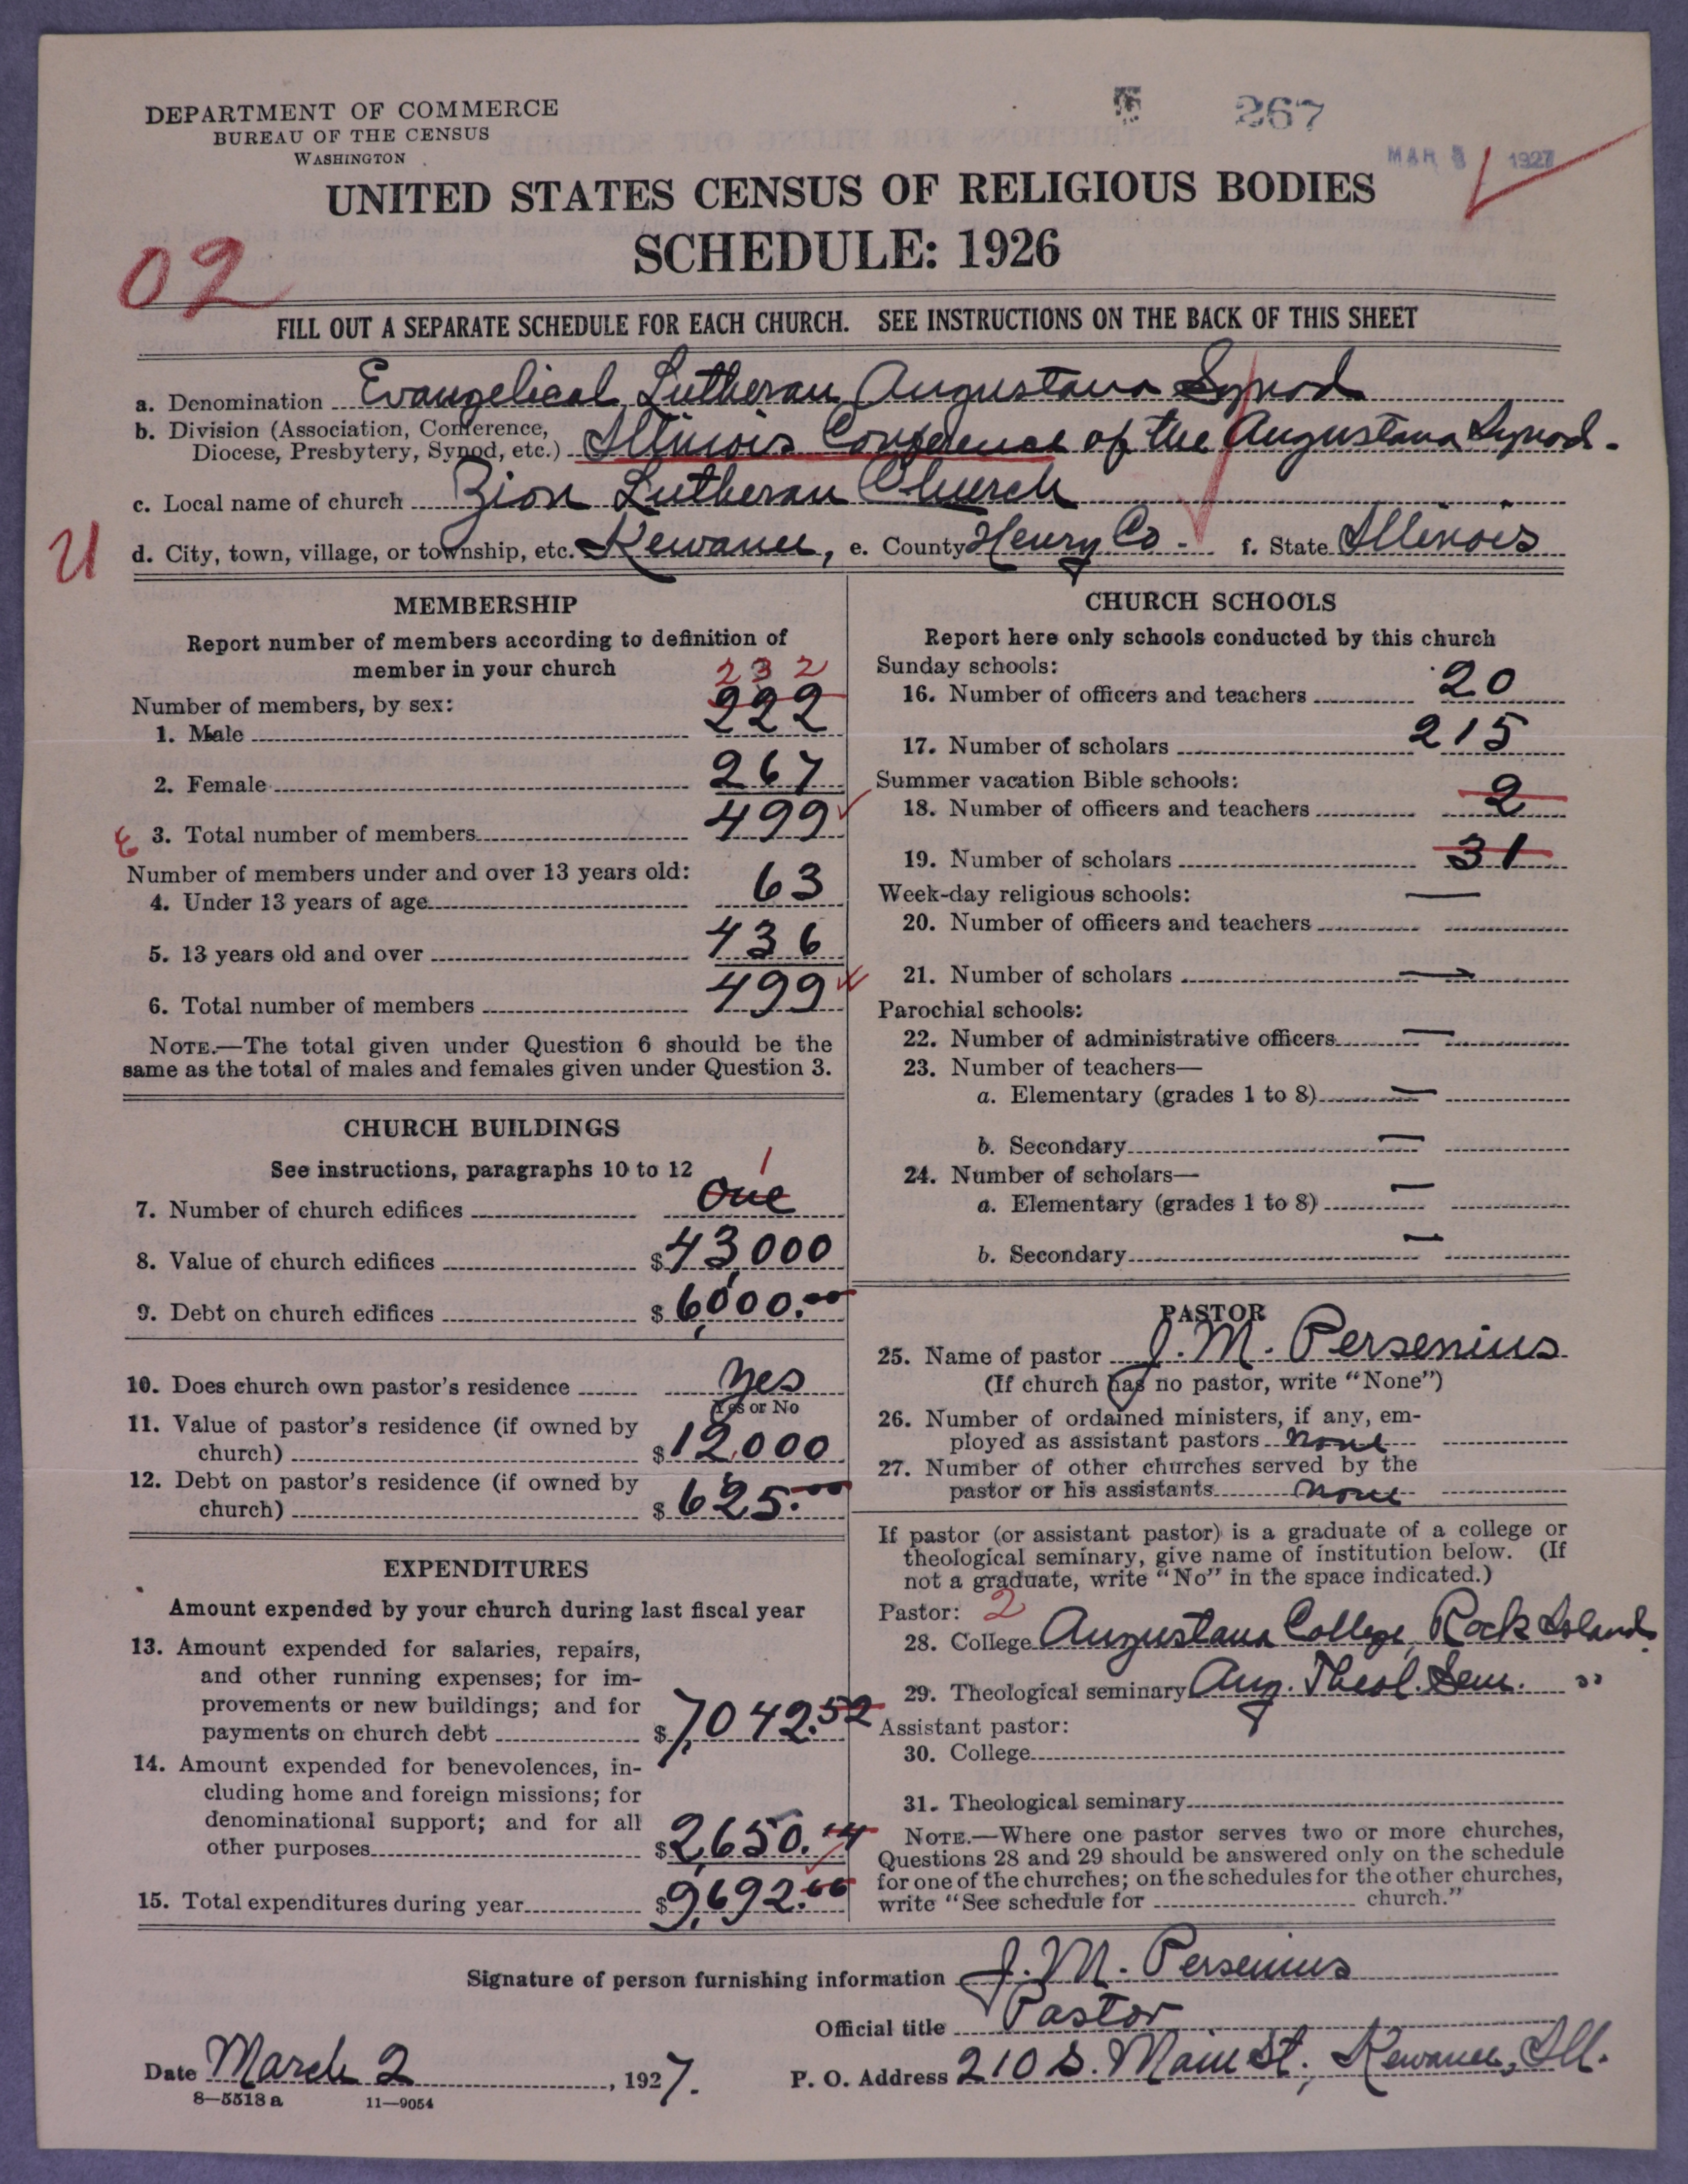 DEPARTMENT OF COMMERCE
BUREAU OF THE CENSUS
WASHINGTON
267
MAR 5 1927
UNITED STATES CENSUS OF RELIGIOUS BODIES
SCHEDULE: 1926
02
FILL OUT A SEPARATE SCHEDULE FOR EACH CHURCH. SEE INSTRUCTIONS ON THE BACK OF THIS SHEET
a. Denomination Evangelical Lutheran Augustana Synod
b. Division (Association, Conference,
Diocese, Presbytery, Synod, etc.) Illinois Conference of the Augustana Synod.
c. Local name of church Zion Lutheran Church
U
d. City, town, village, or township, etc. Kewanee, e. County Henry Co. f. State Illinois
MEMBERSHIP
Report number of members according to definition of
member in your church
232
Number of members, by sex:
1. Male 222
2. Female 267
3. Total number of members 499
Number of members under and over 13 years old:
4. Under 13 years of age 63
5. 13 years old and over 436
6. Total number of members 499
NOTE.—The total given under Question 6 should be the
same as the total of males and females given under Question 3.
CHURCH BUILDINGS
See instructions, paragraphs 10 to 12
1
7. Number of church edifices One
8. Value of church edifices $43,000
9. Debt on church edifices $6,000.00
10. Does church own pastor's residence Yes
Yes or No
11. Value of pastor's residence (if owned by
church) $12,000
12. Debt on pastor's residence (if owned by
church) $625.00
EXPENDITURES
Amount expended by your church during last fiscal year
13. Amount expended for salaries, repairs,
and other running expenses; for im-
provements or new buildings; and for
payments on church debt $7,042.52
14. Amount expended for benevolences, in-
cluding home and foreign missions; for
denominational support; and for all
other purposes $2,650.14
15. Total expenditures during year $9,692.66
CHURCH SCHOOLS
Report here only schools conducted by this church
Sunday schools:
16. Number of officers and teachers 20
17. Number of scholars 215
Summer vacation Bible schools:
18. Number of officers and teachers 2
19. Number of scholars 31
Week-day religious schools: —
20. Number of officers and teachers
21. Number of scholars —
Parochial schools:
22. Number of administrative officers —
23. Number of teachers—
a. Elementary (grades 1 to 8) —
b. Secondary —
24. Number of scholars—
a. Elementary (grades 1 to 8) —
b. Secondary —
PASTOR
25. Name of pastor J. M. Persenius
(If church has no pastor, write "None")
26. Number of ordained ministers, if any, em-
ployed as assistant pastors none
27. Number of other churches served by the
pastor or his assistants none
If pastor (or assistant pastor) is a graduate of a college or
theological seminary, give name of institution below. (If
not a graduate, write "No" in the space indicated.)
Pastor: 2
28. College Augustana College, Rock Island.
29. Theological seminary Aug. Theol. Sem. "
Assistant pastor:
30. College
31. Theological seminary
NOTE.—Where one pastor serves two or more churches,
Questions 28 and 29 should be answered only on the schedule
for one of the churches; on the schedules for the other churches,
write "See schedule for church."
Signature of person furnishing information J. M. Persenius
Official title Pastor
Date March 2, 1927.
P. O. Address 210 S. Main St., Kewanee, Ill.
8—5518 a 11—9054